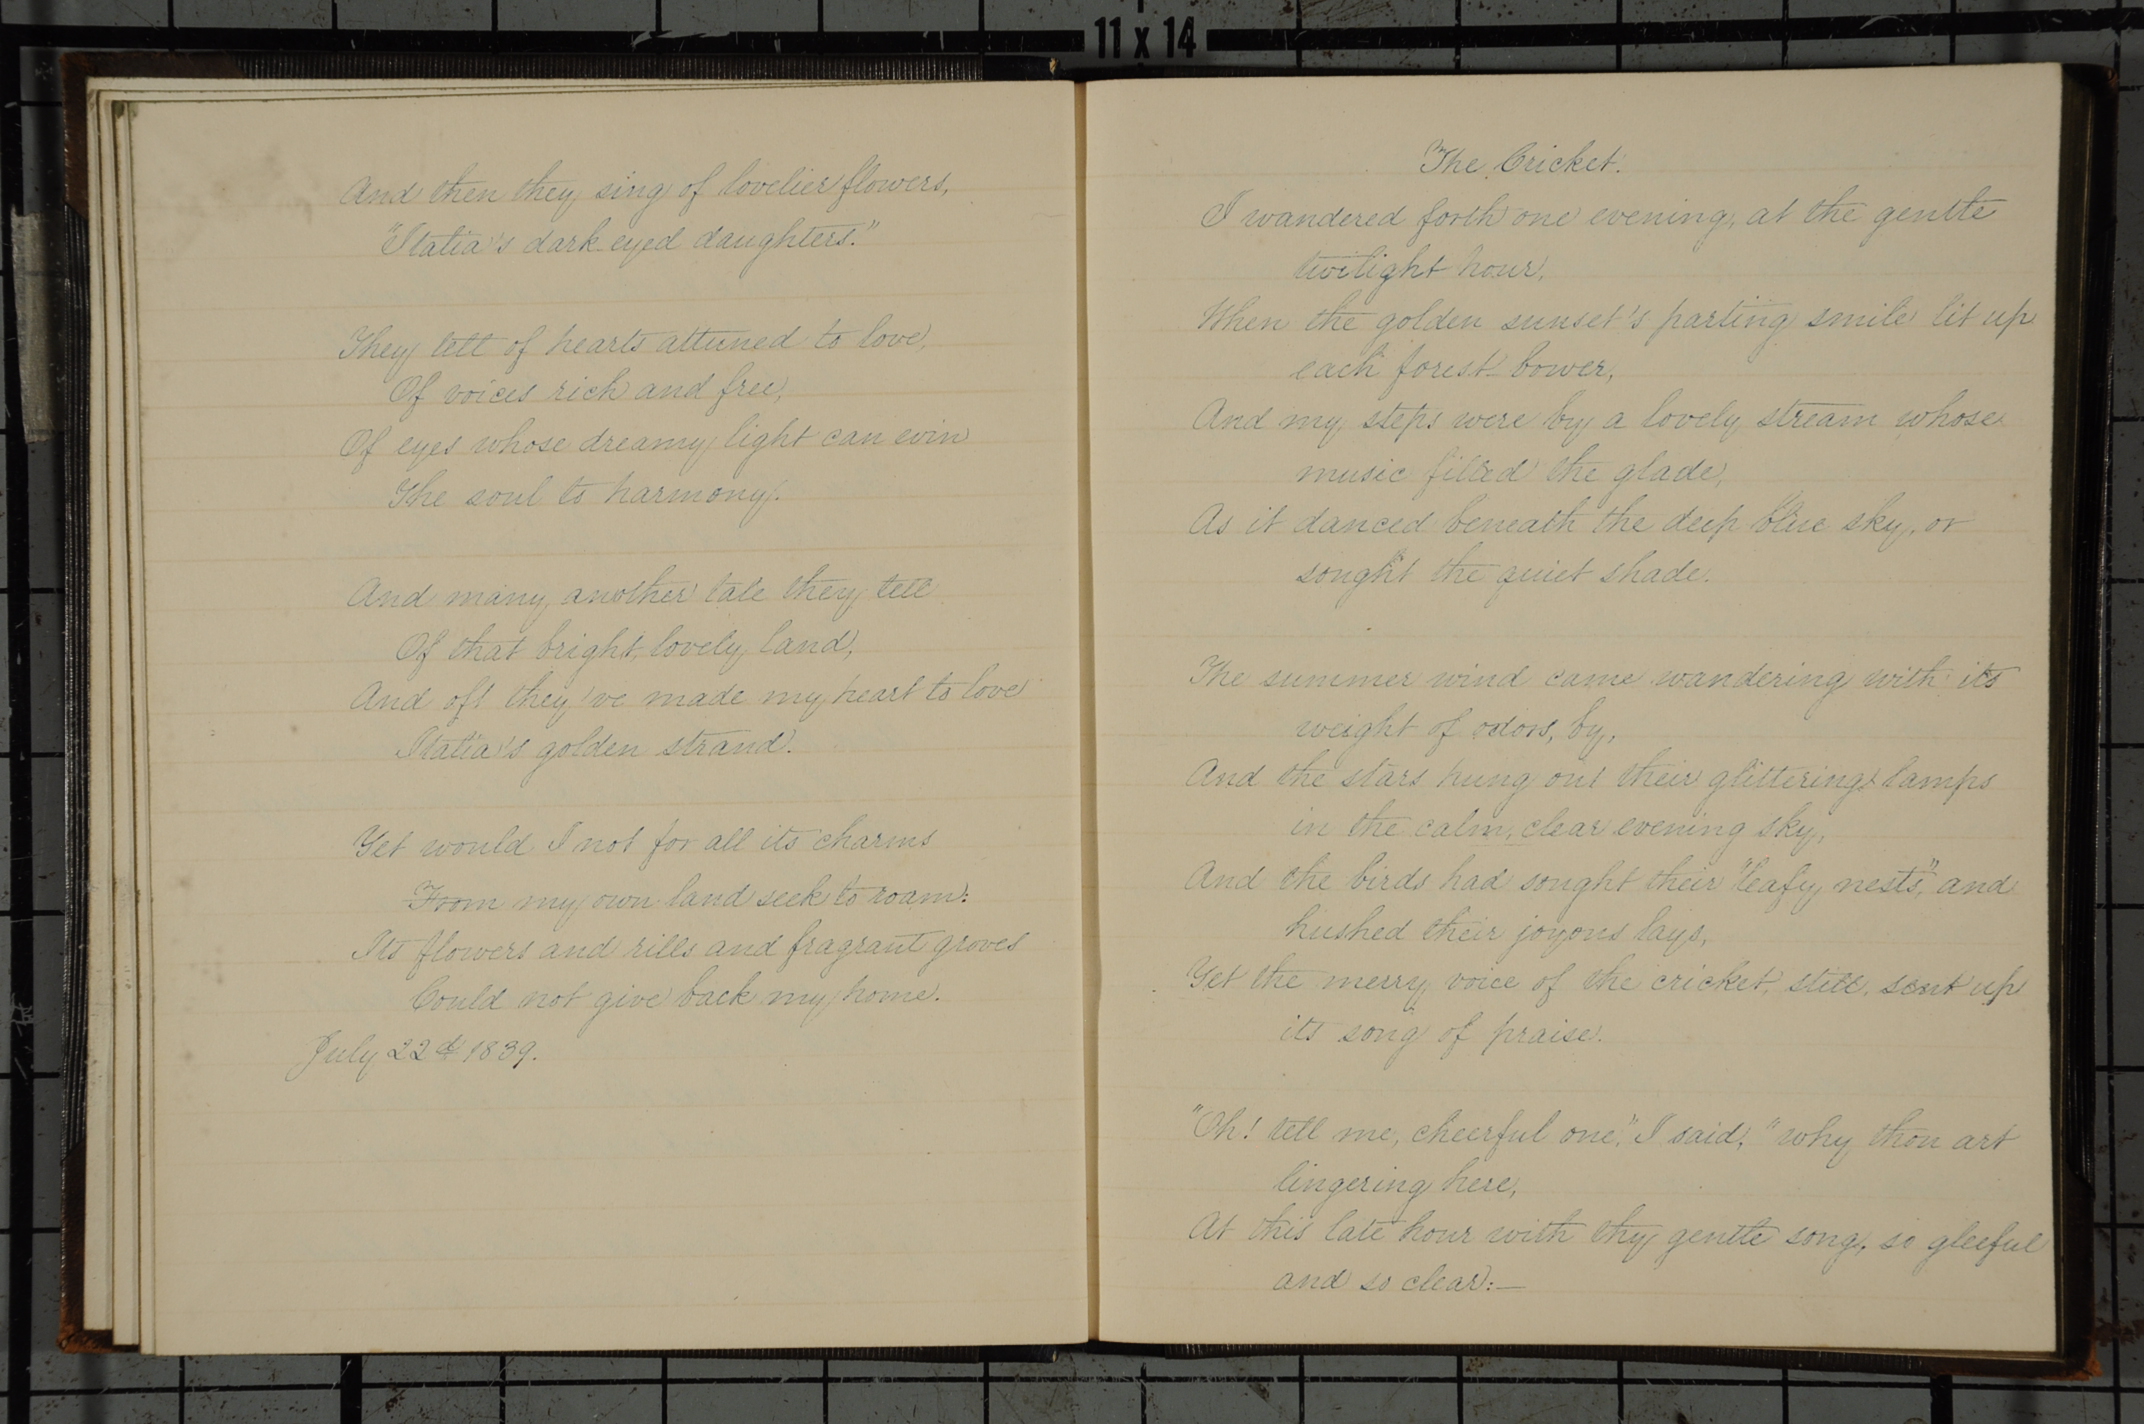 11 x 14
And then they sing of lovelier flowers,
"Italia's dark-eyed daughters."
They tell of hearts attuned to love,
Of voices rich and free,
Of eyes whose dreamy light can win
The soul to harmony.
And many another tale they tell
Of that bright, lovely land,
And oft they've made my heart to love
Italia's golden strand.
Yet would I not for all its charms
From my own land seek to roam:
Its flowers and rills and fragrant groves
Could not give back my home.
July 22d 1839.
The Cricket.
I wandered forth one evening, at the gentle
twilight hour,
When the golden sunset's parting smile lit up
each forest bower,
And my steps were by a lovely stream whose
music filled the glade,
As it danced beneath the deep blue sky, or
sought the quiet shade.
The summer wind came wandering with its
weight of odors, by,
And the stars hung out their glittering lamps
in the calm, clear evening sky,
And the birds had sought their "leafy nests", and
hushed their joyous lays,
Yet the merry voice of the cricket, still, sent up
its song of praise.
"Oh! tell me, cheerful one," I said, "why thou art
lingering here,
At this late hour with thy gentle song, so gleeful
and so clear:—